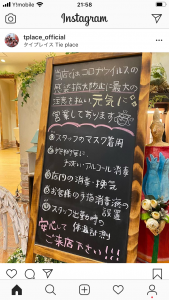 Y!mobile
21:58
Instagram
tplace_official
ケイプレイス Tie place
当店ではコロナウイルスの
感染拡大防止に最大の
注意を払い元気に
営業しております
スタッフのマスク着用
アルコール消毒
店内の消毒・換気
お客様の手指消毒液の
設置
スタッフ出勤時の
体温計測
安心して
ご来店下さい!!!